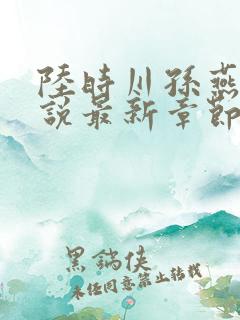 陸時川孫燕
說最新章節
黑鍋俠
未经同意禁止转载